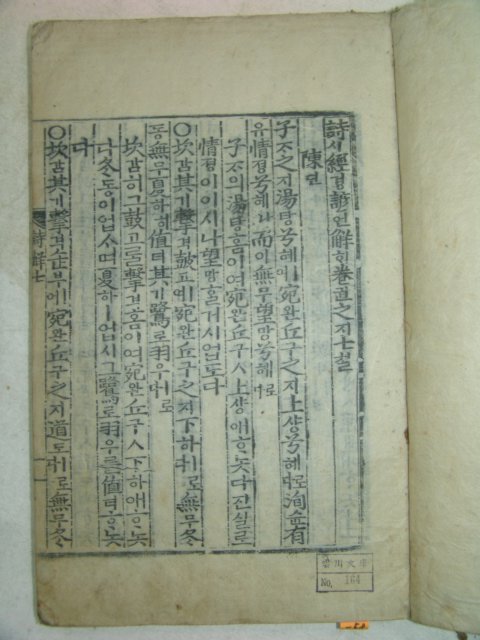 詩시經경諺언解ᄒᆡ卷권之지七칠
陳딘
子ᄌᆞ之지湯탕兮혜여宛완丘구之지上샹兮혜로다洵슌有
유情졍兮혜나而이無무望망兮혜로다
子ᄌᆞ의湯탕홈이여宛완丘구ㅅ上샹애ᄒᆞ놋다진실로
情졍이이시나望망홀거시업도다
○坎감其기擊격鼓고여宛완丘구之지下하ㅣ로다無무冬
동無무夏하히值티其기鷺로羽우ㅣ로다
坎감히그鼓고를擊격홈이여宛완丘구ㅅ下하애ᄒᆞ놋
다冬동이업ㅅ며夏하ㅣ업시그鷺로羽우를值티ᄒᆞ놋
다
○坎감其기擊격缶부여宛완丘구之지道도ㅣ로다無무冬
詩解七
No. 164